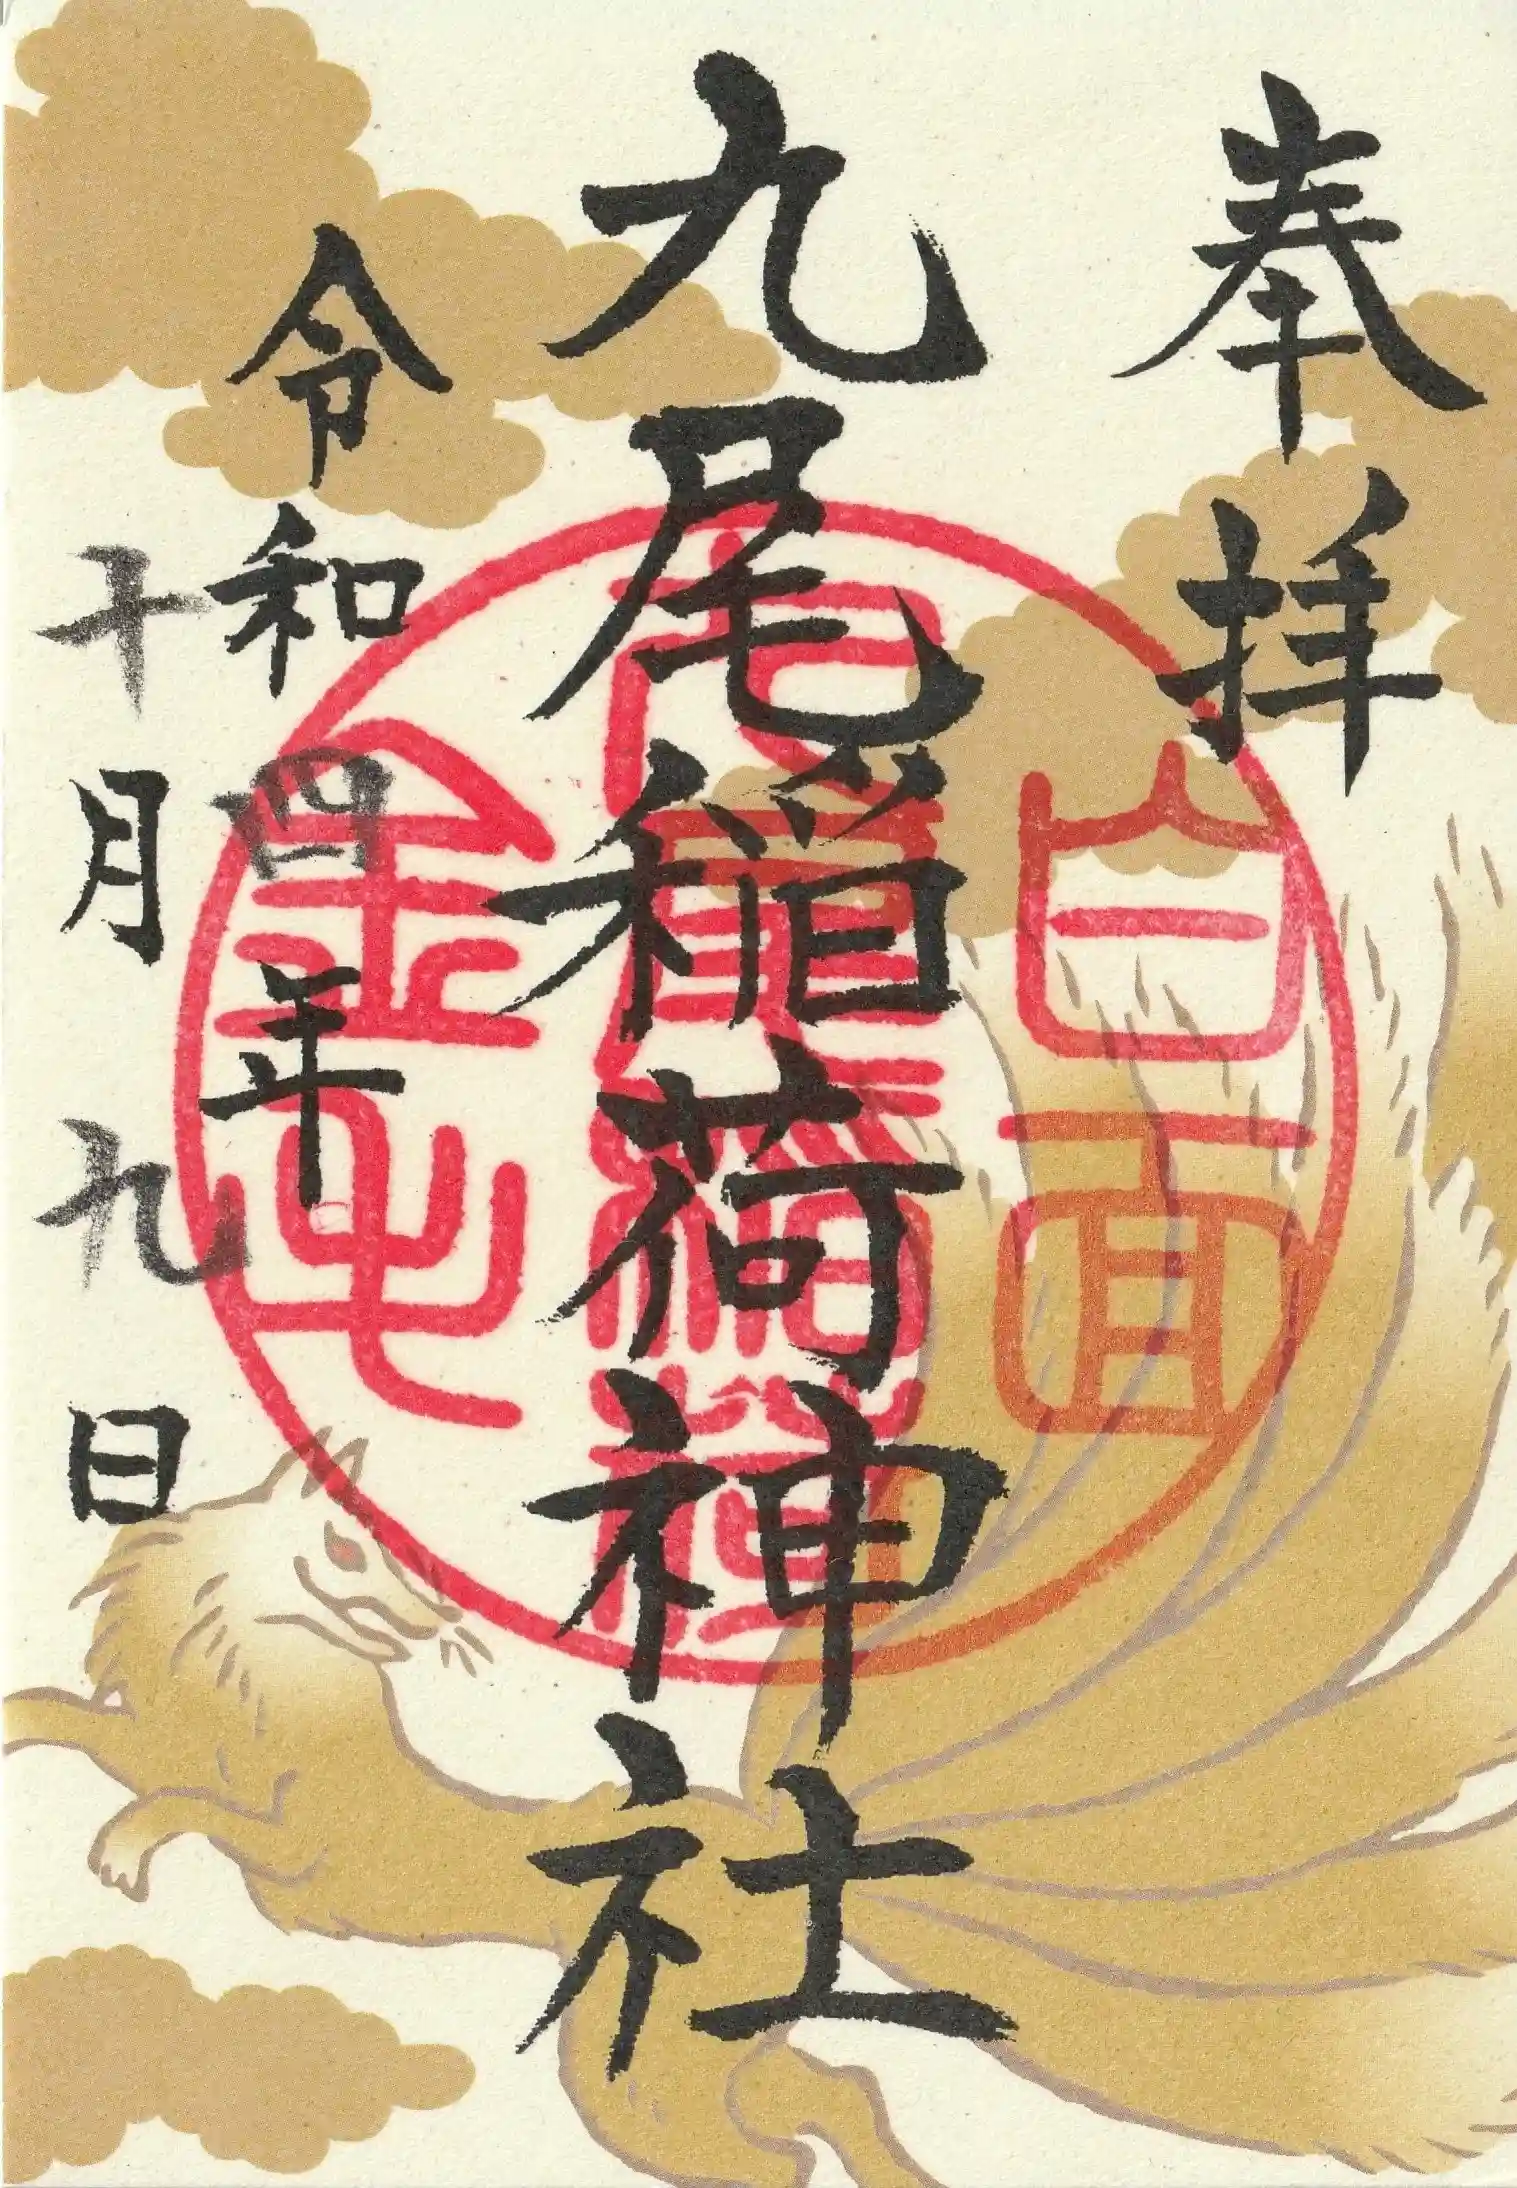 奉拝
九尾稲荷神社
令和四年
十月九日
白面
金毛